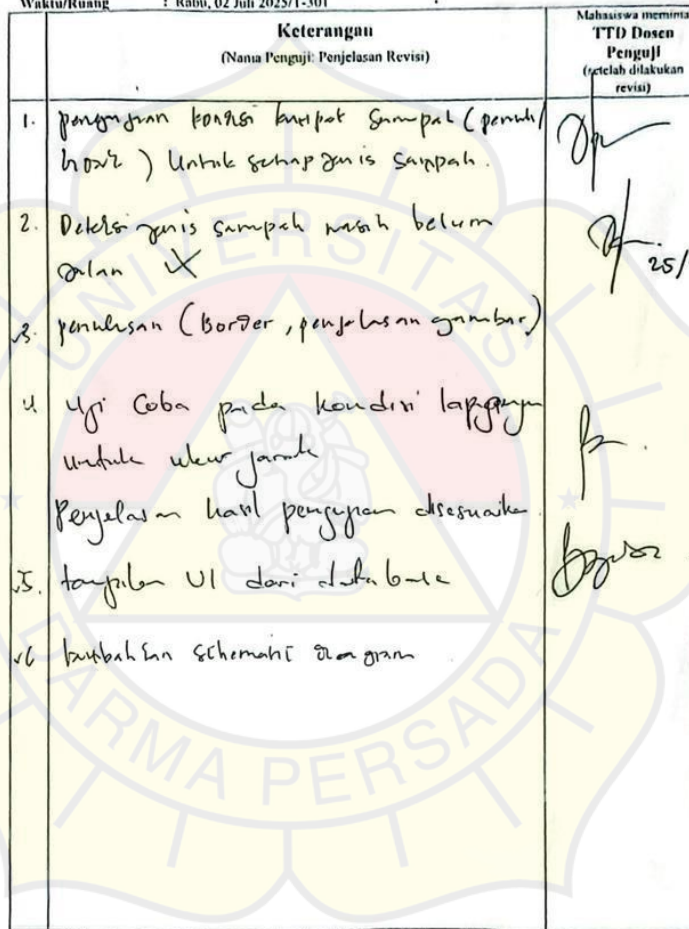 Waktu/Ruang : Rabu, 02 Juli 2025/1-301
Keterangan
(Nama Penguji: Penjelasan Revisi)
Mahasiswa meminta
TTD Dosen
Penguji
(setelah dilakukan
revisi)
1. pengujian kondisi tempat sampah (penuh/
) Untuk setiap jenis sampah.
2. Deteksi jenis sampah masih belum
jalan
25/
3. penulisan (Border, penjelasan gambar)
4 Uji Coba pada kondisi lapangan
untuk ukur jarak
Penjelasan hasil pengujian disesuaikan
5. tampilan UI dari database
6 tambahkan schematic diagram
UNIVERSITAS
DARMA PERSADA